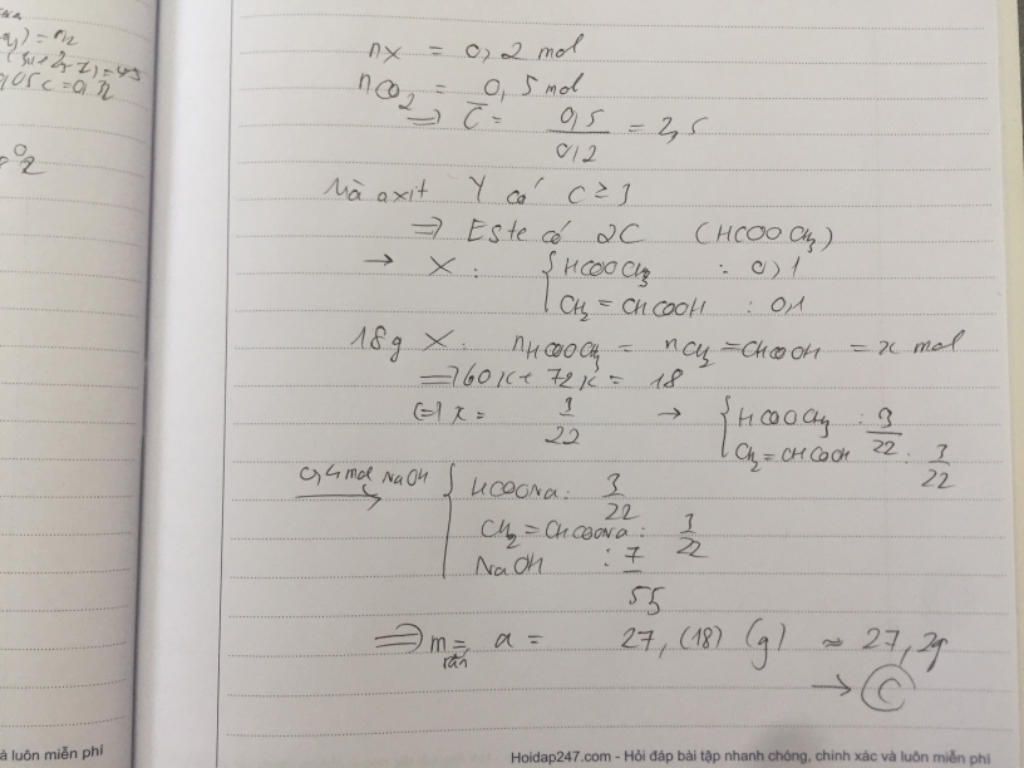 q) = n2
(3u+2y-z)=45
0,05 c = 0,2
O2
nX = 0,2 mol
nCO2 = 0,5 mol
=> C̄ = 0,5/0,2 = 2,5
Mà axit Y có C ≥ 3
=> Este có 2C (HCOOCH3)
→ X: { HCOOCH3 : 0,1
CH2 = CHCOOH : 0,1
18g X: nHCOOCH3 = nCH2=CHCOOH = x mol
=> 60x + 72x = 18
(=) x = 3/22 → { HCOOCH3 : 3/22
CH2 = CHCOOH : 3/22
0,4 mol NaOH → { HCOONa: 3/22
CH2 = CHCOONa: 3/22
NaOH : 7/55
=> m rắn = a = 27,(18) (g) ≈ 27,2g
→ C
à luôn miễn phí
Hoidap247.com - Hỏi đáp bài tập nhanh chóng, chính xác và luôn miễn phí